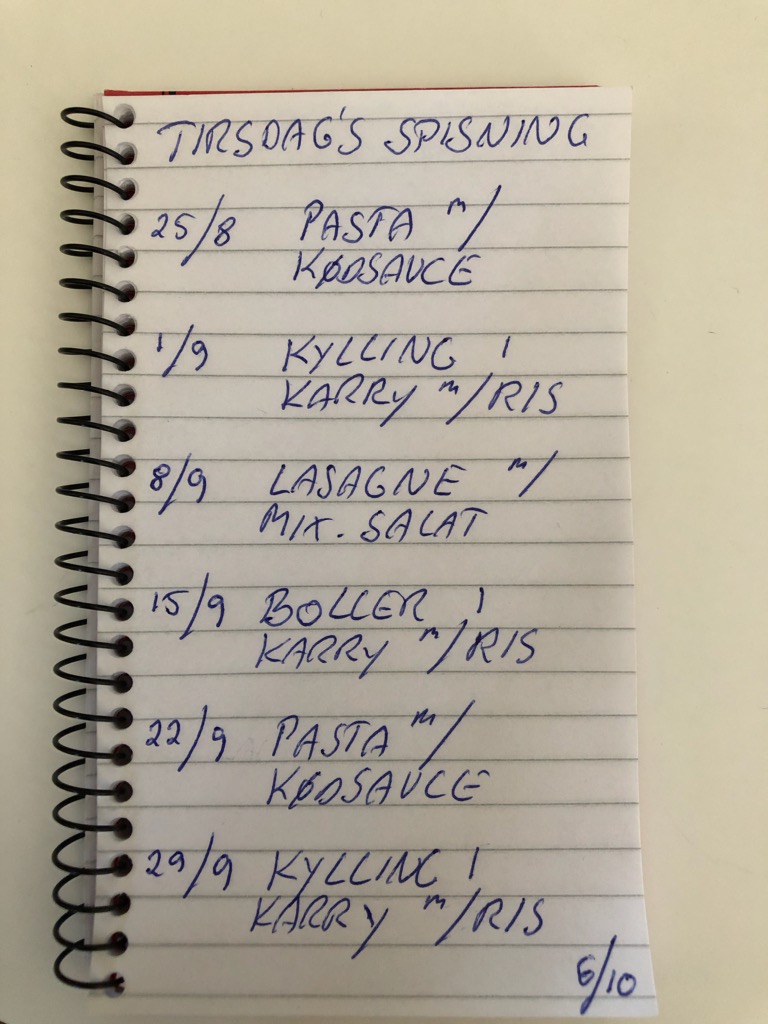 TIRSDAG'S SPISNING
25/8 PASTA m/
KØDSAUCE
1/9 KYLLING I
KARRY m/RIS
8/9 LASAGNE m/
MIX. SALAT
15/9 BOLLER I
KARRY m/RIS
22/9 PASTA m/
KØDSAUCE
29/9 KYLLING I
KARRY m/RIS
6/10